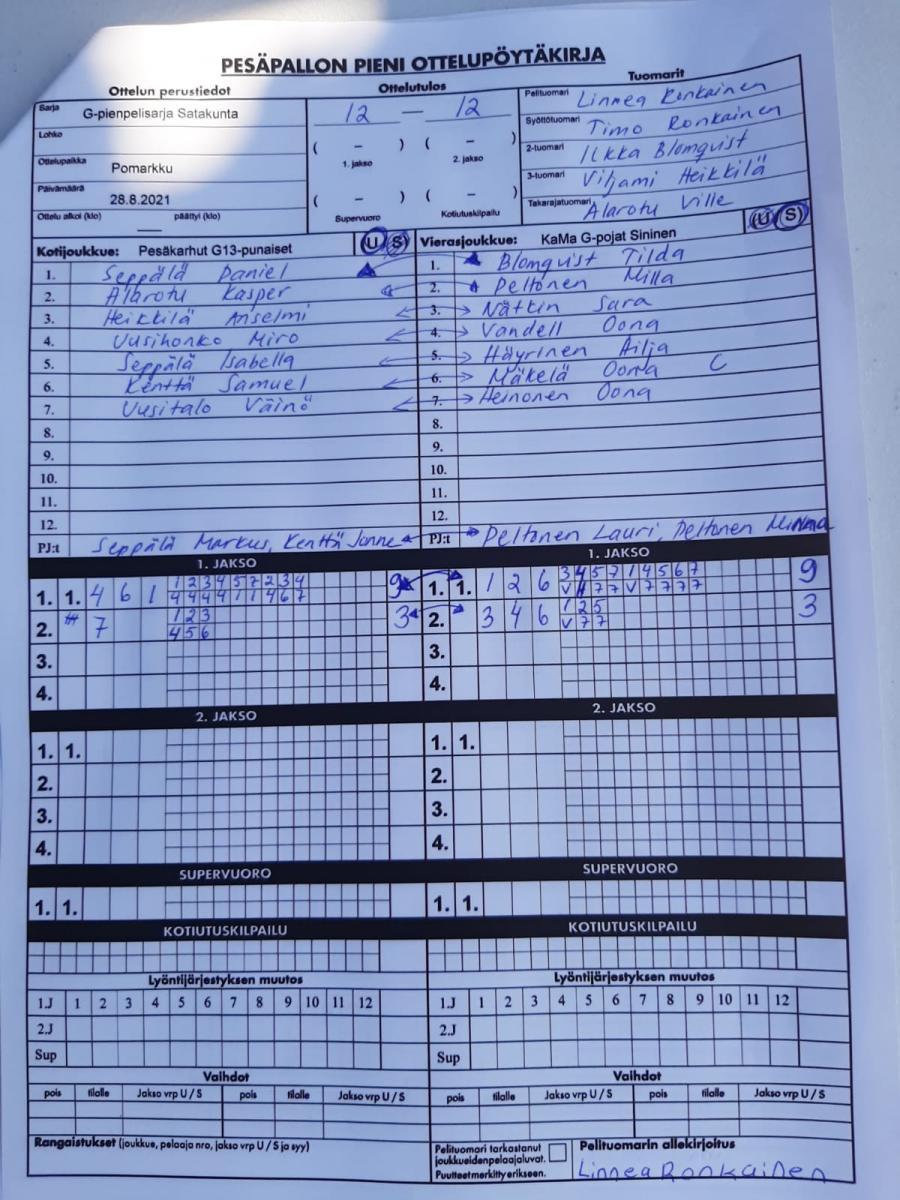 PESÄPALLON PIENI OTTELUPÖYTÄKIRJA
Ottelun perustiedot Ottelutulos Tuomarit
Sarja G-pienpelisarja Satakunta
Lohko
Ottelupaikka Pomarkku
Päivämäärä 28.8.2021
Ottelu alkoi (klo) päättyi (klo)
12 — 12
( – ) ( – )
1. jakso 2. jakso
( – ) ( – )
Supervuoro Kotiutuskilpailu
Pelituomari Linnea Ronkainen
Syöttötuomari Timo Ronkainen
2-tuomari Ilkka Blomqvist
3-tuomari Viljami Heikkilä
Takarajatuomari Alarotu Ville
Kotijoukkue: Pesäkarhut G13-punaiset U S
1. Seppälä Daniel
2. Alarotu Kasper
3. Heikkilä Anselmi
4. Uusihonko Miro
5. Seppälä Isabella
6. Kenttä Samuel
7. Uusitalo Väinö
8.
9.
10.
11.
12.
PJ:t Seppälä Markus, Kenttä Janne
Vierasjoukkue: KaMa G-pojat Sininen U S
1. Blomqvist Tilda
2. Peltonen Milla
3. Nättin Sara
4. Vandell Oona
5. Häyrinen Ailja
6. Mäkelä Oona C
7. Heinonen Oona
8.
9.
10.
11.
12.
PJ:t Peltonen Lauri, Peltonen Minna
1. JAKSO 1. JAKSO
1 2 3 4 5 7 2 3 4
1. 1. 4 6 1 4 4 4 4 1 1 4 6 7 9
1 2 3
2. 7 4 5 6 3
3.
4.
3 4 5 7 1 4 5 6 7
1. 1. 1 2 6 V 4 7 7 V 7 7 7 7 9
1 2 5
2. 3 4 6 V 7 7 3
3.
4.
2. JAKSO 2. JAKSO
1. 1. 1. 1.
2. 2.
3. 3.
4. 4.
SUPERVUORO SUPERVUORO
1. 1. 1. 1.
KOTIUTUSKILPAILU KOTIUTUSKILPAILU
Lyöntijärjestyksen muutos Lyöntijärjestyksen muutos
1.J 1 2 3 4 5 6 7 8 9 10 11 12 1.J 1 2 3 4 5 6 7 8 9 10 11 12
2.J 2.J
Sup Sup
Vaihdot Vaihdot
pois tilalle Jakso vrp U / S pois tilalle Jakso vrp U / S pois tilalle Jakso vrp U / S pois tilalle Jakso vrp U / S
Rangaistukset (joukkue, pelaaja nro, jakso vrp U / S ja syy)
Pelituomari tarkastanut
joukkueidenpelaajaluvat.
Puutteetmerkittyerikseen.
Pelituomarin allekirjoitus
Linnea Ronkainen